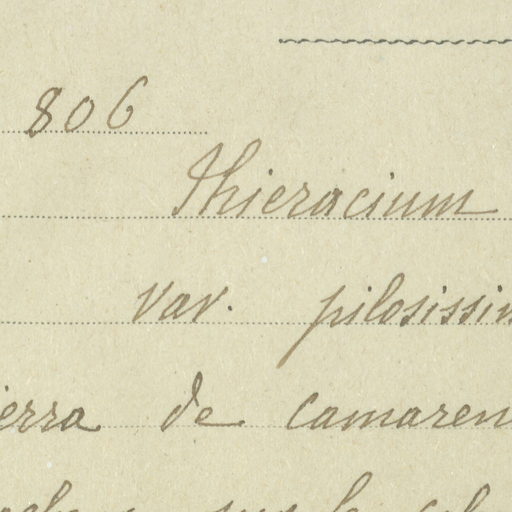 806
Hieracium
var. pilosissim
ierra de camaren
sur le cal